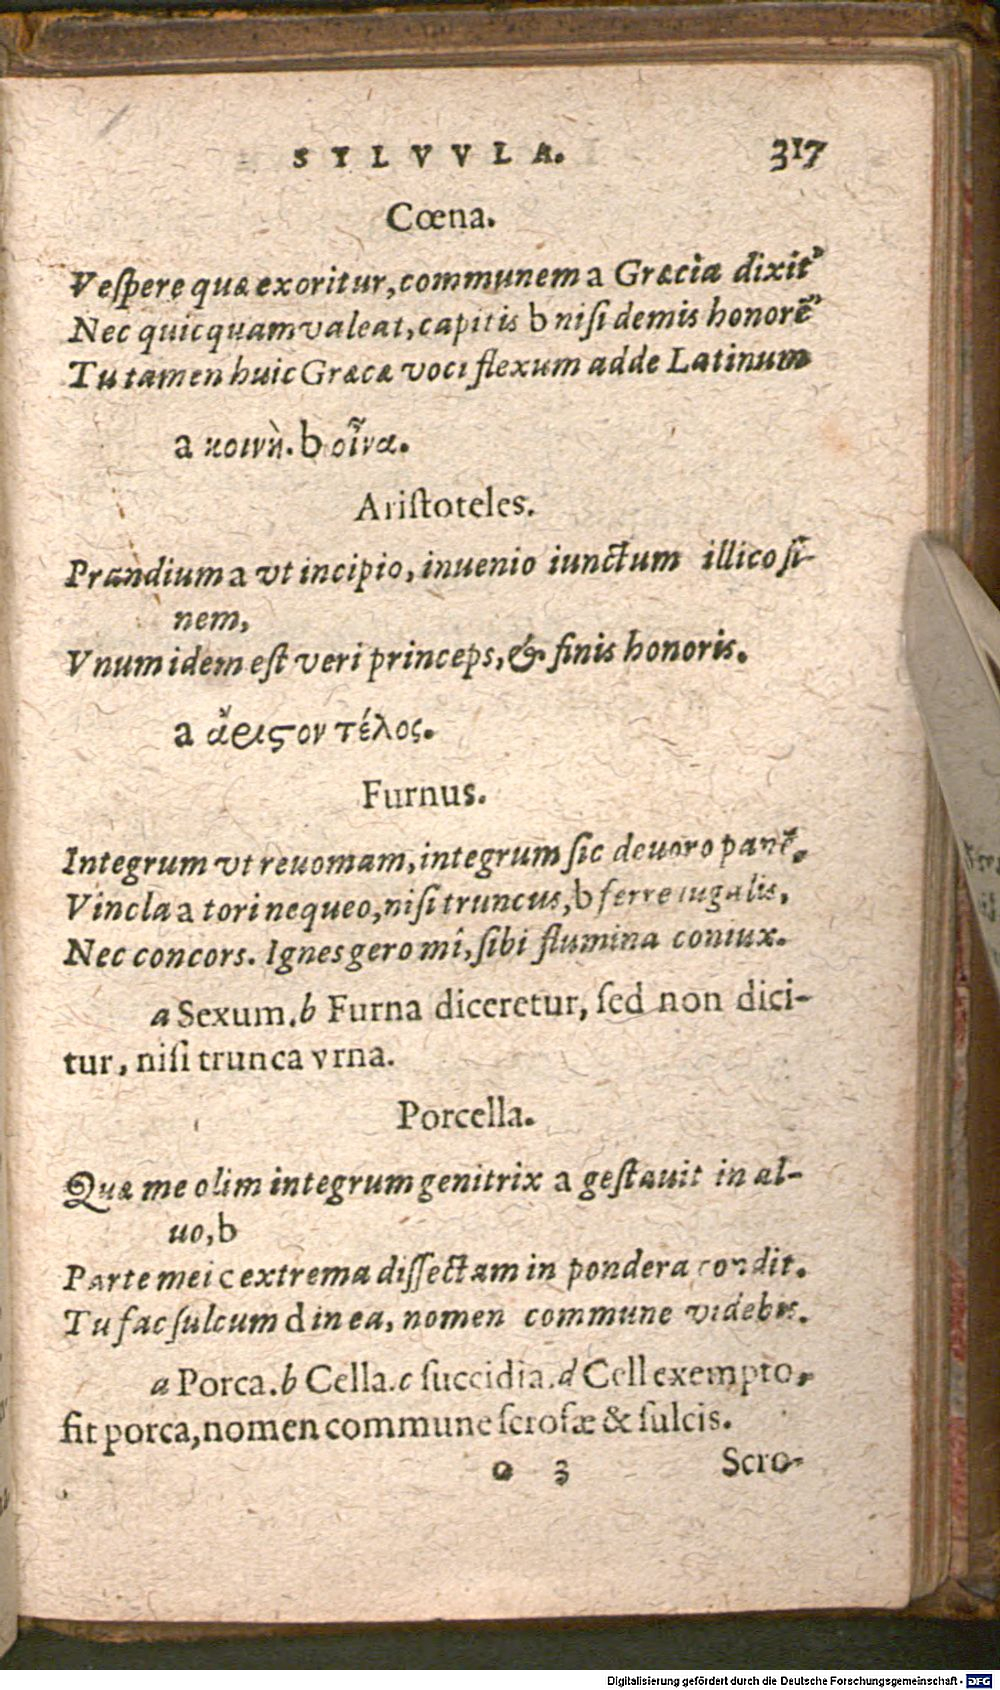 SYLVVLA. 317
Cœna.
Vespere quæ exoritur, communem a Græcia dixit
Nec quicquam valeat, capitis b nisi demis honorẽ
Tu tamen huic Græcæ voci flexum adde Latinum
a κοινὴ. b οἶνα.
Aristoteles.
Prandium a vt incipio, inuenio iunctum illico fi-
nem,
Vnum idem est veri princeps, & finis honoris.
a ἄριςον τέλος.
Furnus.
Integrum vt reuomam, integrum sic deuoro panẽ.
Vincla a tori nequeo, nisi truncus, b ferre iugalis,
Nec concors. Ignes gero mî, sibi flumina coniux.
a Sexum. b Furna diceretur, sed non dici-
tur, nisi trunca vrna.
Porcella.
Quæ me olim integrum genitrix a gestauit in al-
uo, b
Parte mei c extrema dissectam in pondera condit.
Tu fac sulcum d in ea, nomen commune videbis.
a Porca. b Cella. c succidia. d Cell exempto,
fit porca, nomen commune scrofæ & sulcis.
o 3 Scro-
Digitalisierung gefördert durch die Deutsche Forschungsgemeinschaft - DFG